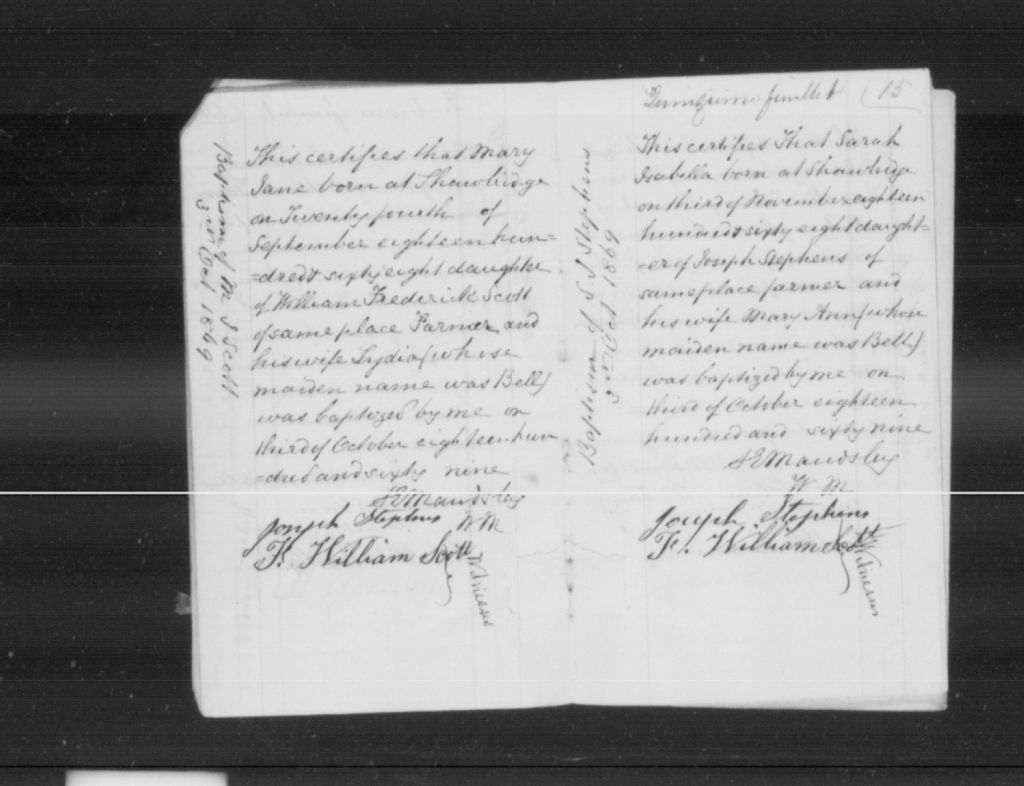 Baptism of M J Scott
3rd Oct 1869
This certifies that Mary
Jane born at Shawbridge
on Twenty fourth of
September eighteen hun=
=dred & sixty eight daughter
of William Frederick Scott
of same place Farmer and
his wife Lydia (whose
maiden name was Bell)
was baptized by me on
third of October eighteen hun
=dred and sixty nine
Maudsley
WM
Joseph Stephens
F. William Scott
Witnesses
Quinzième feuillet (15
Baptism of S. I Stephens
3rd Oct 1869
This certifies That Sarah
Isabella born at Shawbridge
on third of November eighteen
hundred & sixty eight daught=
=er of Joseph Stephens of
same place farmer and
his wife Mary Ann (whose
maiden name was Bell)
was baptized by me on
third of October eighteen
hundred and sixty nine
Maudsley
W M
Joseph Stephens
F. William Scott
Witnesses